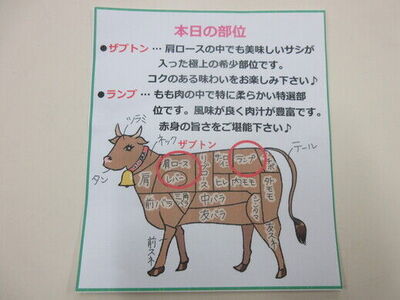 本日の部位
●ザブトン … 肩ロースの中でも美味しいサシが
入った極上の希少部位です。
コクのある味わいをお楽しみ下さい♪
●ランプ … もも肉の中で特に柔らかい特選部
位です。風味が良く肉汁が豊富です。
赤身の旨さをご堪能下さい♪
ツラミ
ネック
ザブトン
テール
タン
肩
肩ロース
リブロース
ランプ
レバー
ヒレ
内モモ
外モモ
前バラ
三角
中バラ
友バラ
前スネ
友スネ